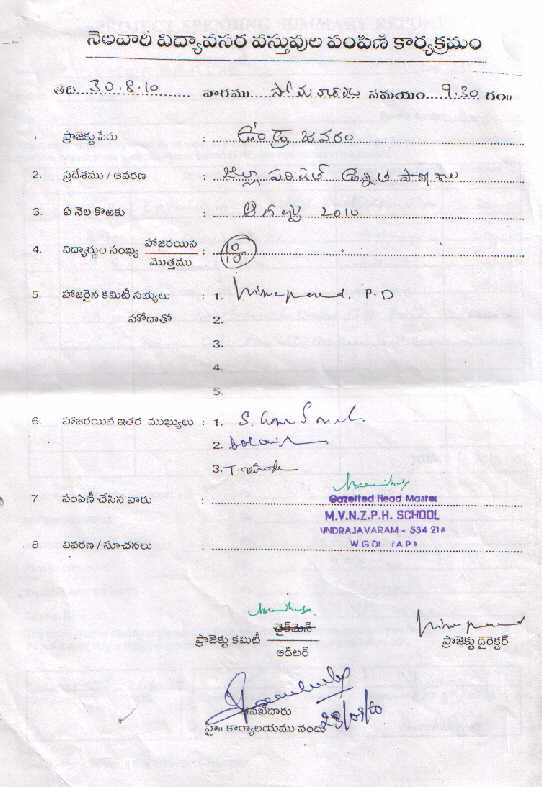 నెలవారీ విద్యావసర వస్తువుల పంపిణీ కార్యక్రమం
తేది 30.8.10 వారము సోమవారము సమయం 9.30 గం॥
1. ప్రాజెక్టు పేరు : ఉండ్రాజవరం
2. ప్రదేశము / ఆవరణ : జిల్లా పరిషత్ ఉన్నత పాఠశాల
3. ఏ నెల కొఱకు : ఆగష్టు 2010
4. విద్యార్థుల సంఖ్య హాజరయిన / మొత్తము :
5. హాజరైన కమిటీ సభ్యులు : 1. P.D
హోదాతో 2.
3.
4.
5.
6. హాజరయిన ఇతర ముఖ్యులు : 1. S.
2.
3. T
7 పంపిణీ చేసిన వారు :
Gazetted Head Master
M.V.N.Z.P.H. SCHOOL
UNDRAJAVARAM - 534 216
W.G.Dt. (A.P.)
8 వివరణ / సూచనలు :
ప్రాజెక్టు కమిటీ ఛైర్మెన్
ఆడిటర్
ప్రాజెక్టు డైరెక్టర్
కార్యాలయము నందు 28/09/10